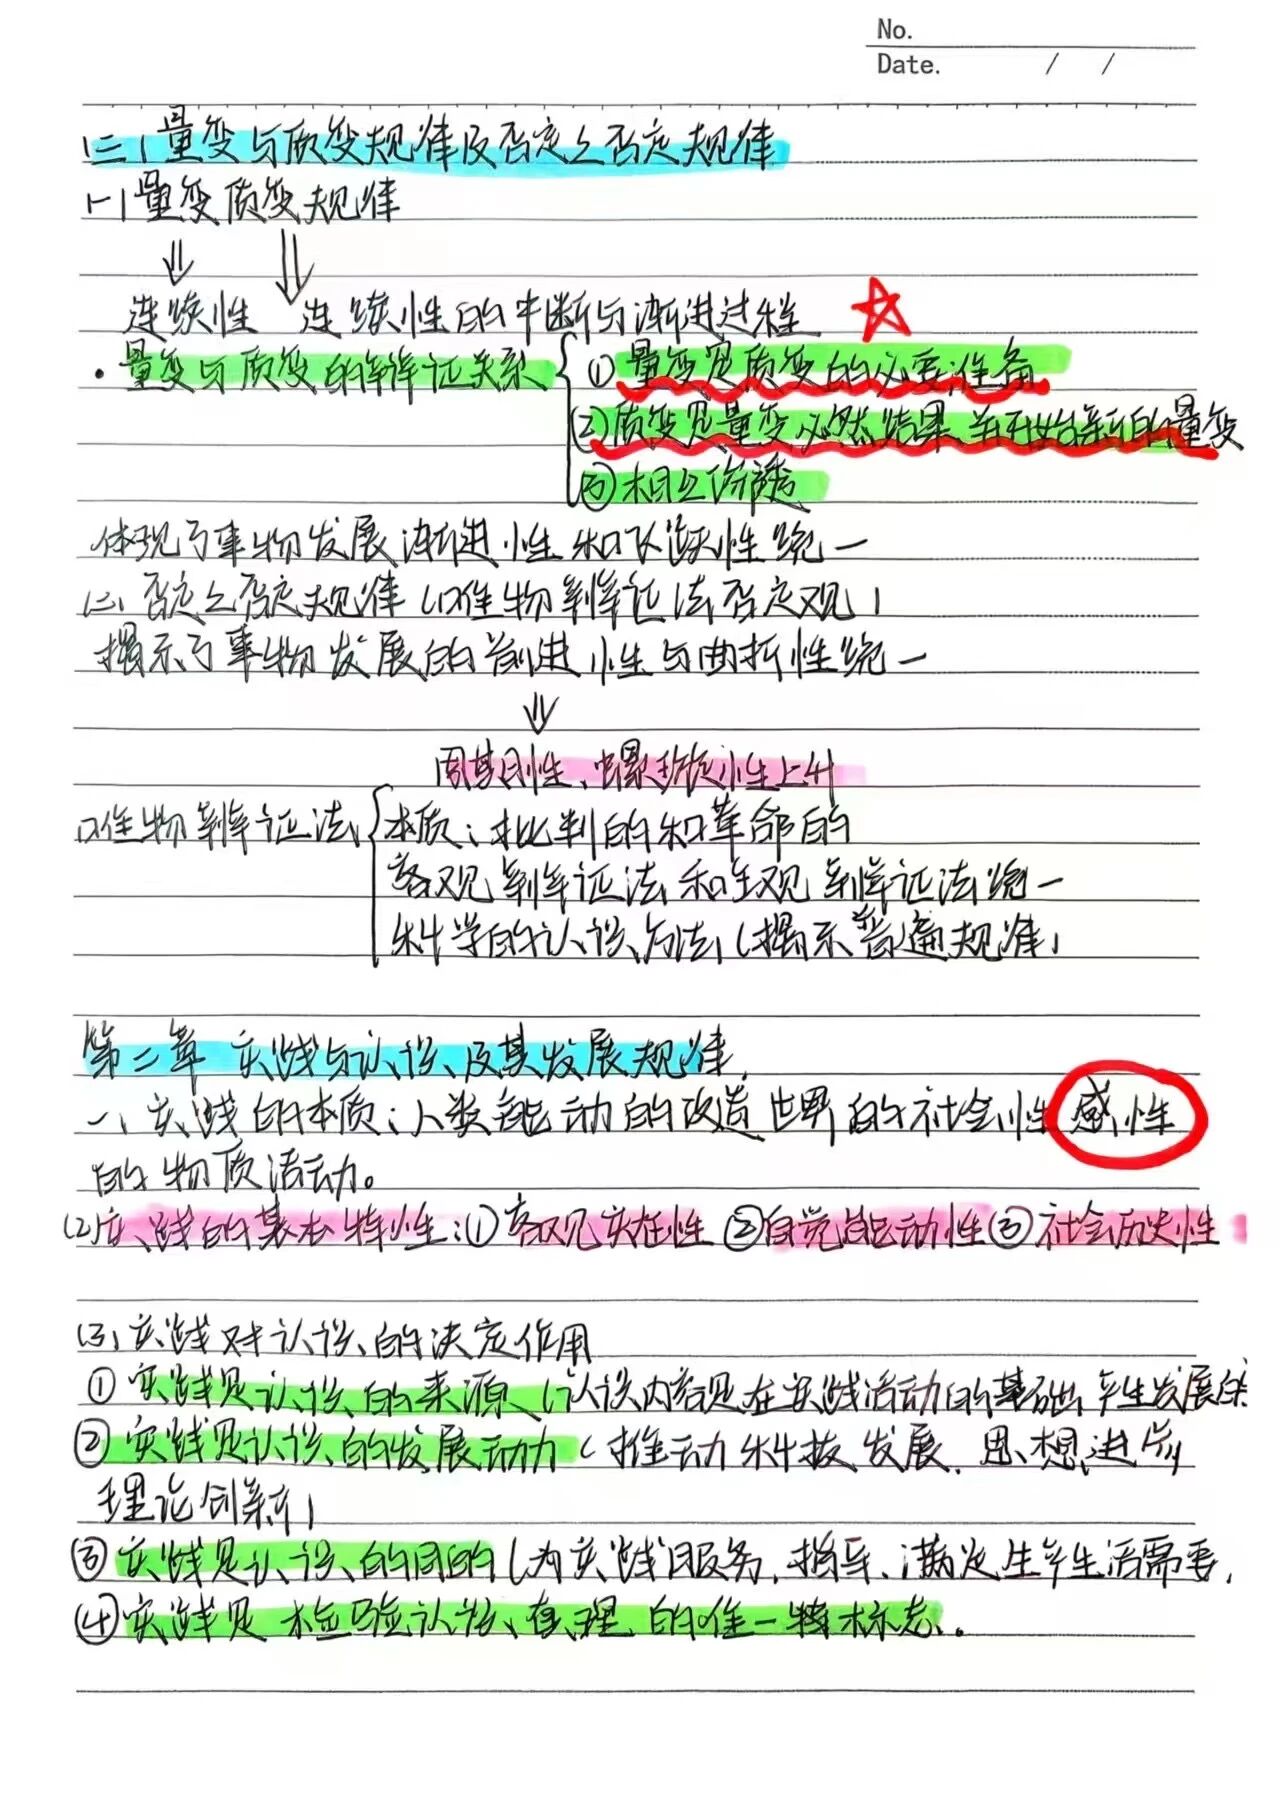 No.
Date. / /
(三)量变与质变规律及否定之否定规律
(一)量变质变规律
连续性 连续性的中断与渐进过程
·量变与质变的辩证关系 ①量变是质变的必要准备
②质变是量变必然结果,并开始新的量变
③相互渗透
体现了事物发展渐进性和飞跃性统一
(二)否定之否定规律(唯物辩证法否定观)
揭示了事物发展的前进性与曲折性统一
周期性、螺旋性上升
唯物辩证法 本质:批判的和革命的
客观辩证法和主观辩证法统一
科学的认识方法(揭示普遍规律)
第二章 实践与认识及其发展规律
一、实践的本质:人类能动的改造世界的社会性感性
的物质活动。
(2)实践的基本特性:①客观实在性②自觉能动性③社会历史性
(3)实践对认识的决定作用
①实践是认识的来源(认识内容是在实践活动的基础产生发展的
②实践是认识的发展动力(推动科技发展,思想进步,
理论创新)
③实践是认识的目的(为实践服务,指导、满足生产生活需要)
④实践是检验认识真理的唯一标志。